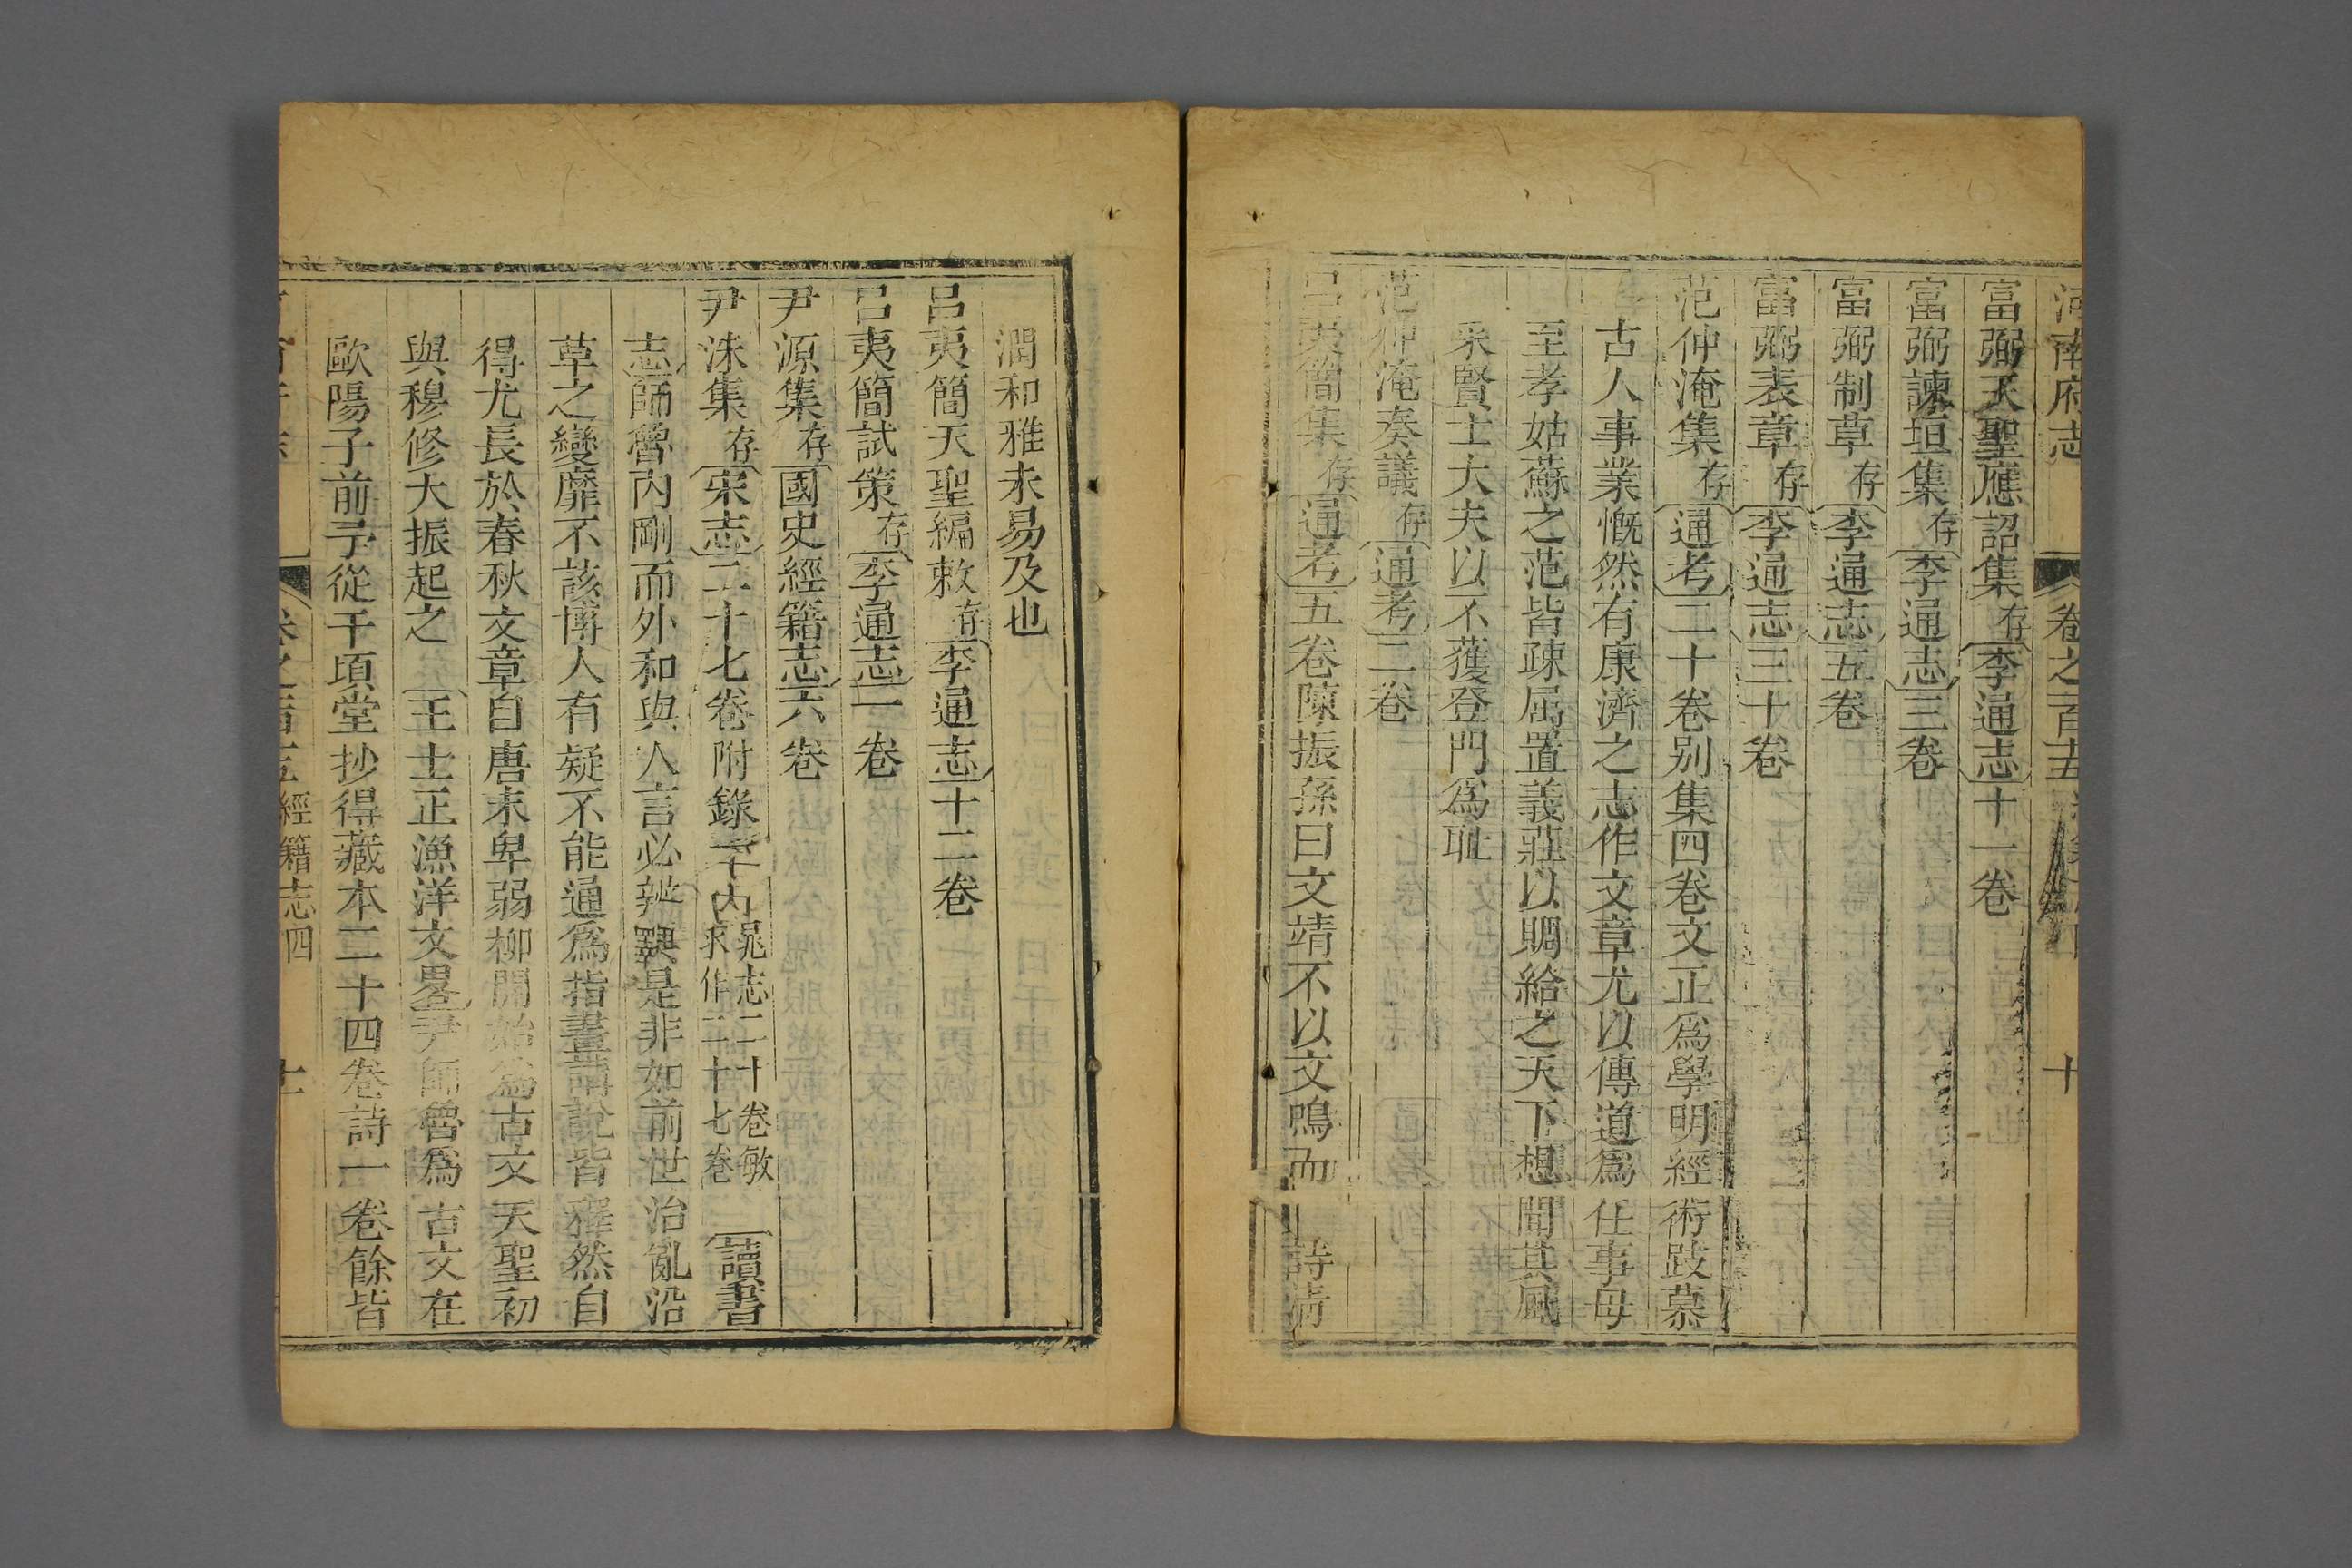 河南府志 卷之百五 十
富弼天聖應詔集存李通志十一卷
富弼諫垣集存李通志三卷
富弼制草存李通志五卷
富弼表章存李通志三十卷
范仲淹集存通考二十卷别集四卷文正爲學明經術跂慕
古人事業慨然有康濟之志作文章尤以傳道爲任事母
至孝姑蘇之范皆疎屬置義莊以賙給之天下想聞其風
采賢士大夫以不獲登門爲耻
范仲淹奏議存通考二卷
呂夷簡集存通考五卷陳振孫曰文靖不以文鳴而詩清
潤和雅未易及也
呂夷簡天聖編敕存李通志十二卷
呂夷簡試策存李通志一卷
尹源集存國史經籍志六卷
尹洙集存宋志二十七卷附錄 內晁志二十卷敏求作二十七卷讀書
志師魯內剛而外和與人言必辨 是非如前世治亂沿
草之變靡不該博人有疑不能通爲指畫講說皆釋然自
得尤長於春秋文章自唐末卑弱柳開始爲古文天聖初
與穆修大振起之 王士正漁洋文畧尹師魯爲古文在
歐陽子前予從千頃堂抄得藏本二十四卷詩一卷餘皆
經籍志四